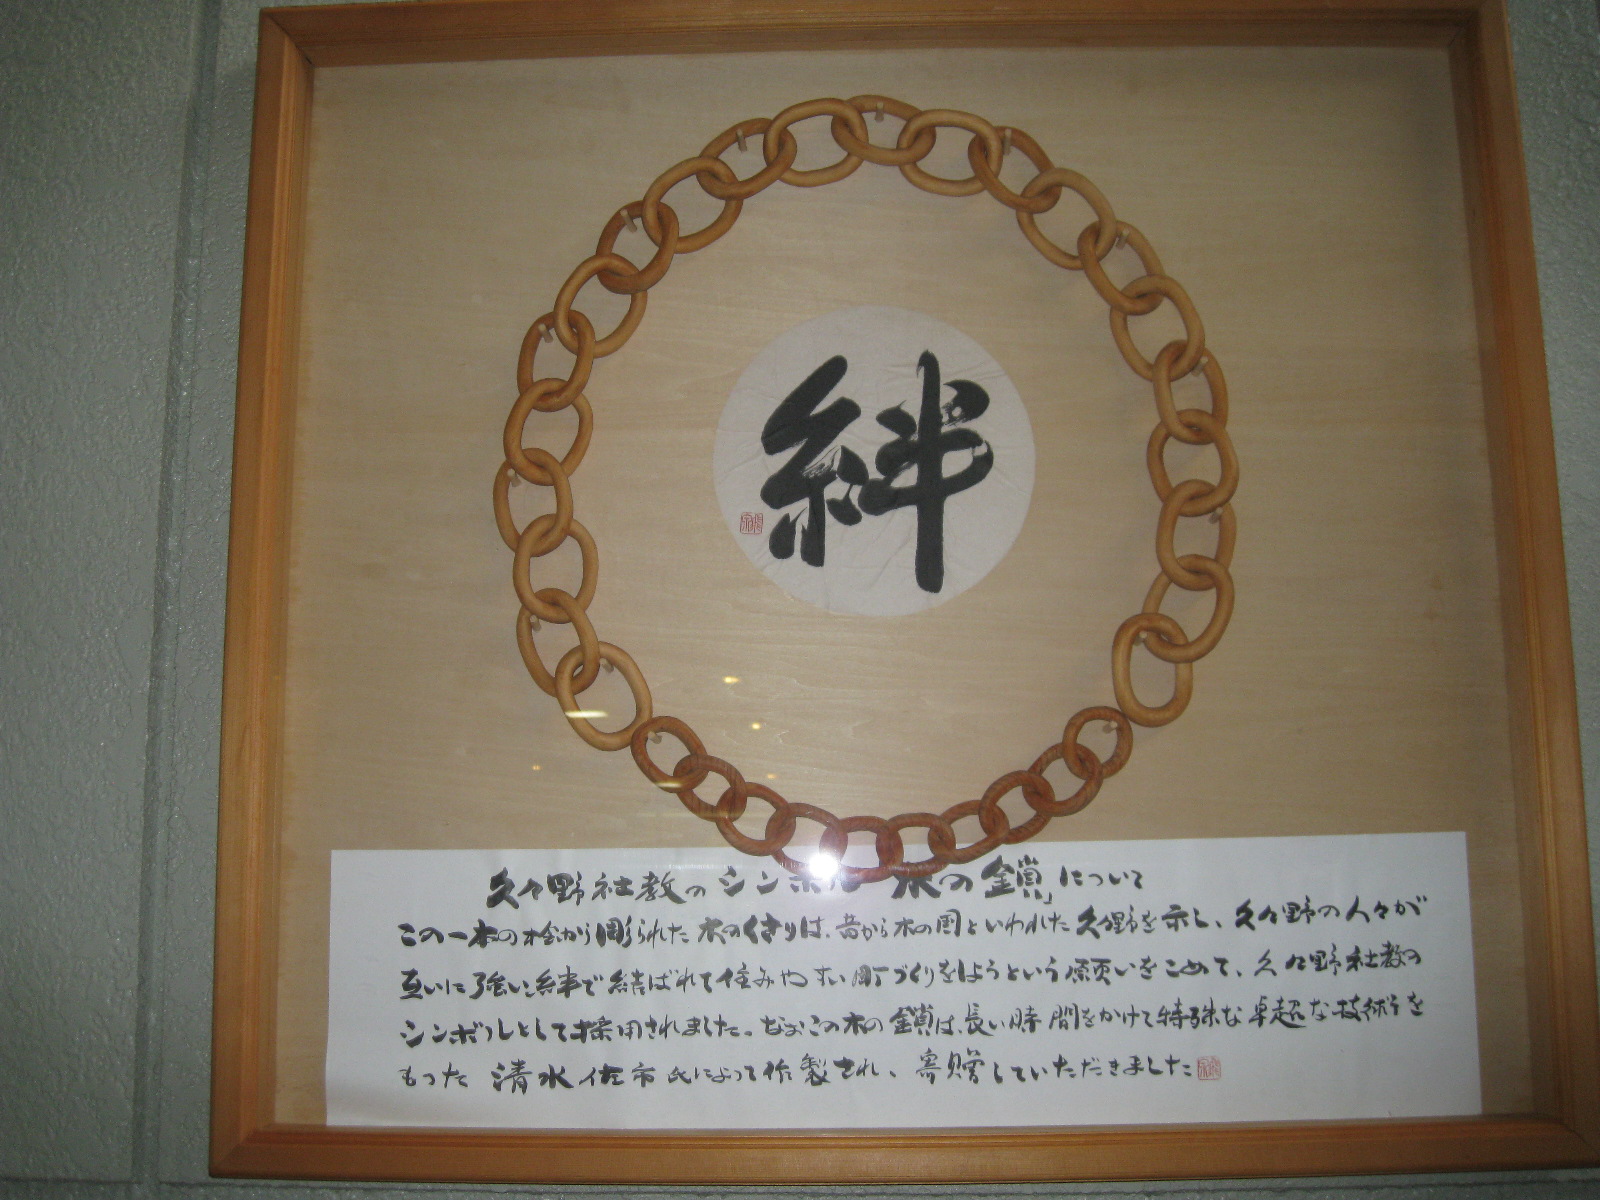 絆
久々野社教のシンボル「木の鎖」について
この一本の木から彫られた木のくさりは、昔から木の国といわれた久々野を示し、久々野の人々が
互いに強い絆で結ばれて住みやすい町づくりをしようという願いをこめて、久々野社教の
シンボルとして採用されました。なおこの木の鎖は、長い時間をかけて特殊な卓超な技術を
もった 清水佐市氏によって作製され、寄贈していただきました